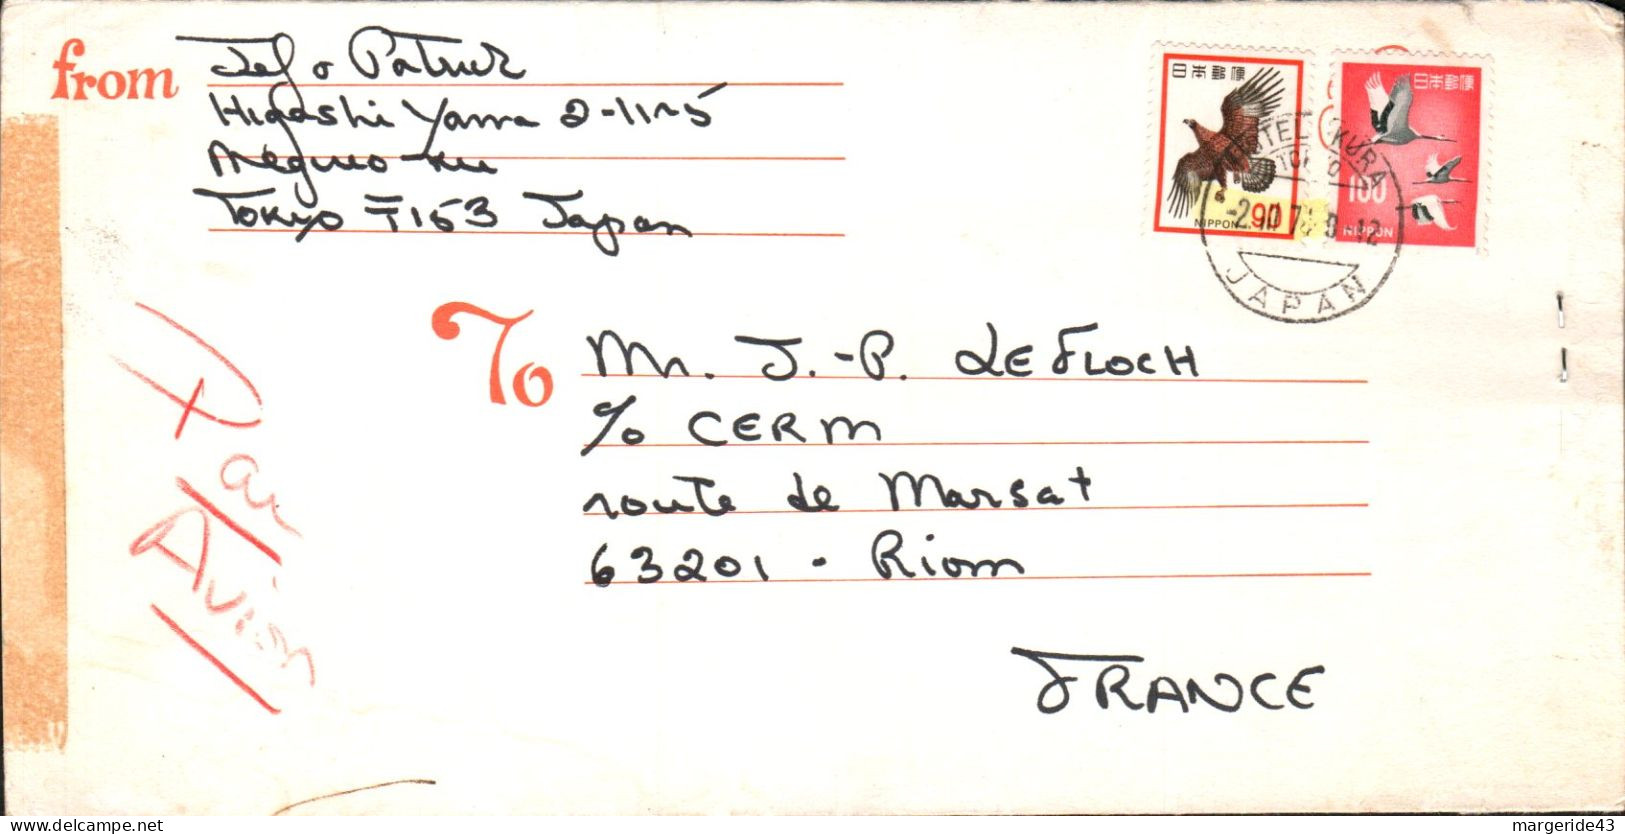 from
Patrick
Higashi Yama 2-11-5
Meguro-ku
Tokyo 〒153 Japan
日本郵便
90
NIPPON
日本郵便
100
NIPPON
HOTEL OKURA
TOKYO
JAPAN
To
Mr. J.-P. LEFLOCH
c/o CERM
route de Marsat
63201 - Riom
FRANCE
Par
Avion
margeride43